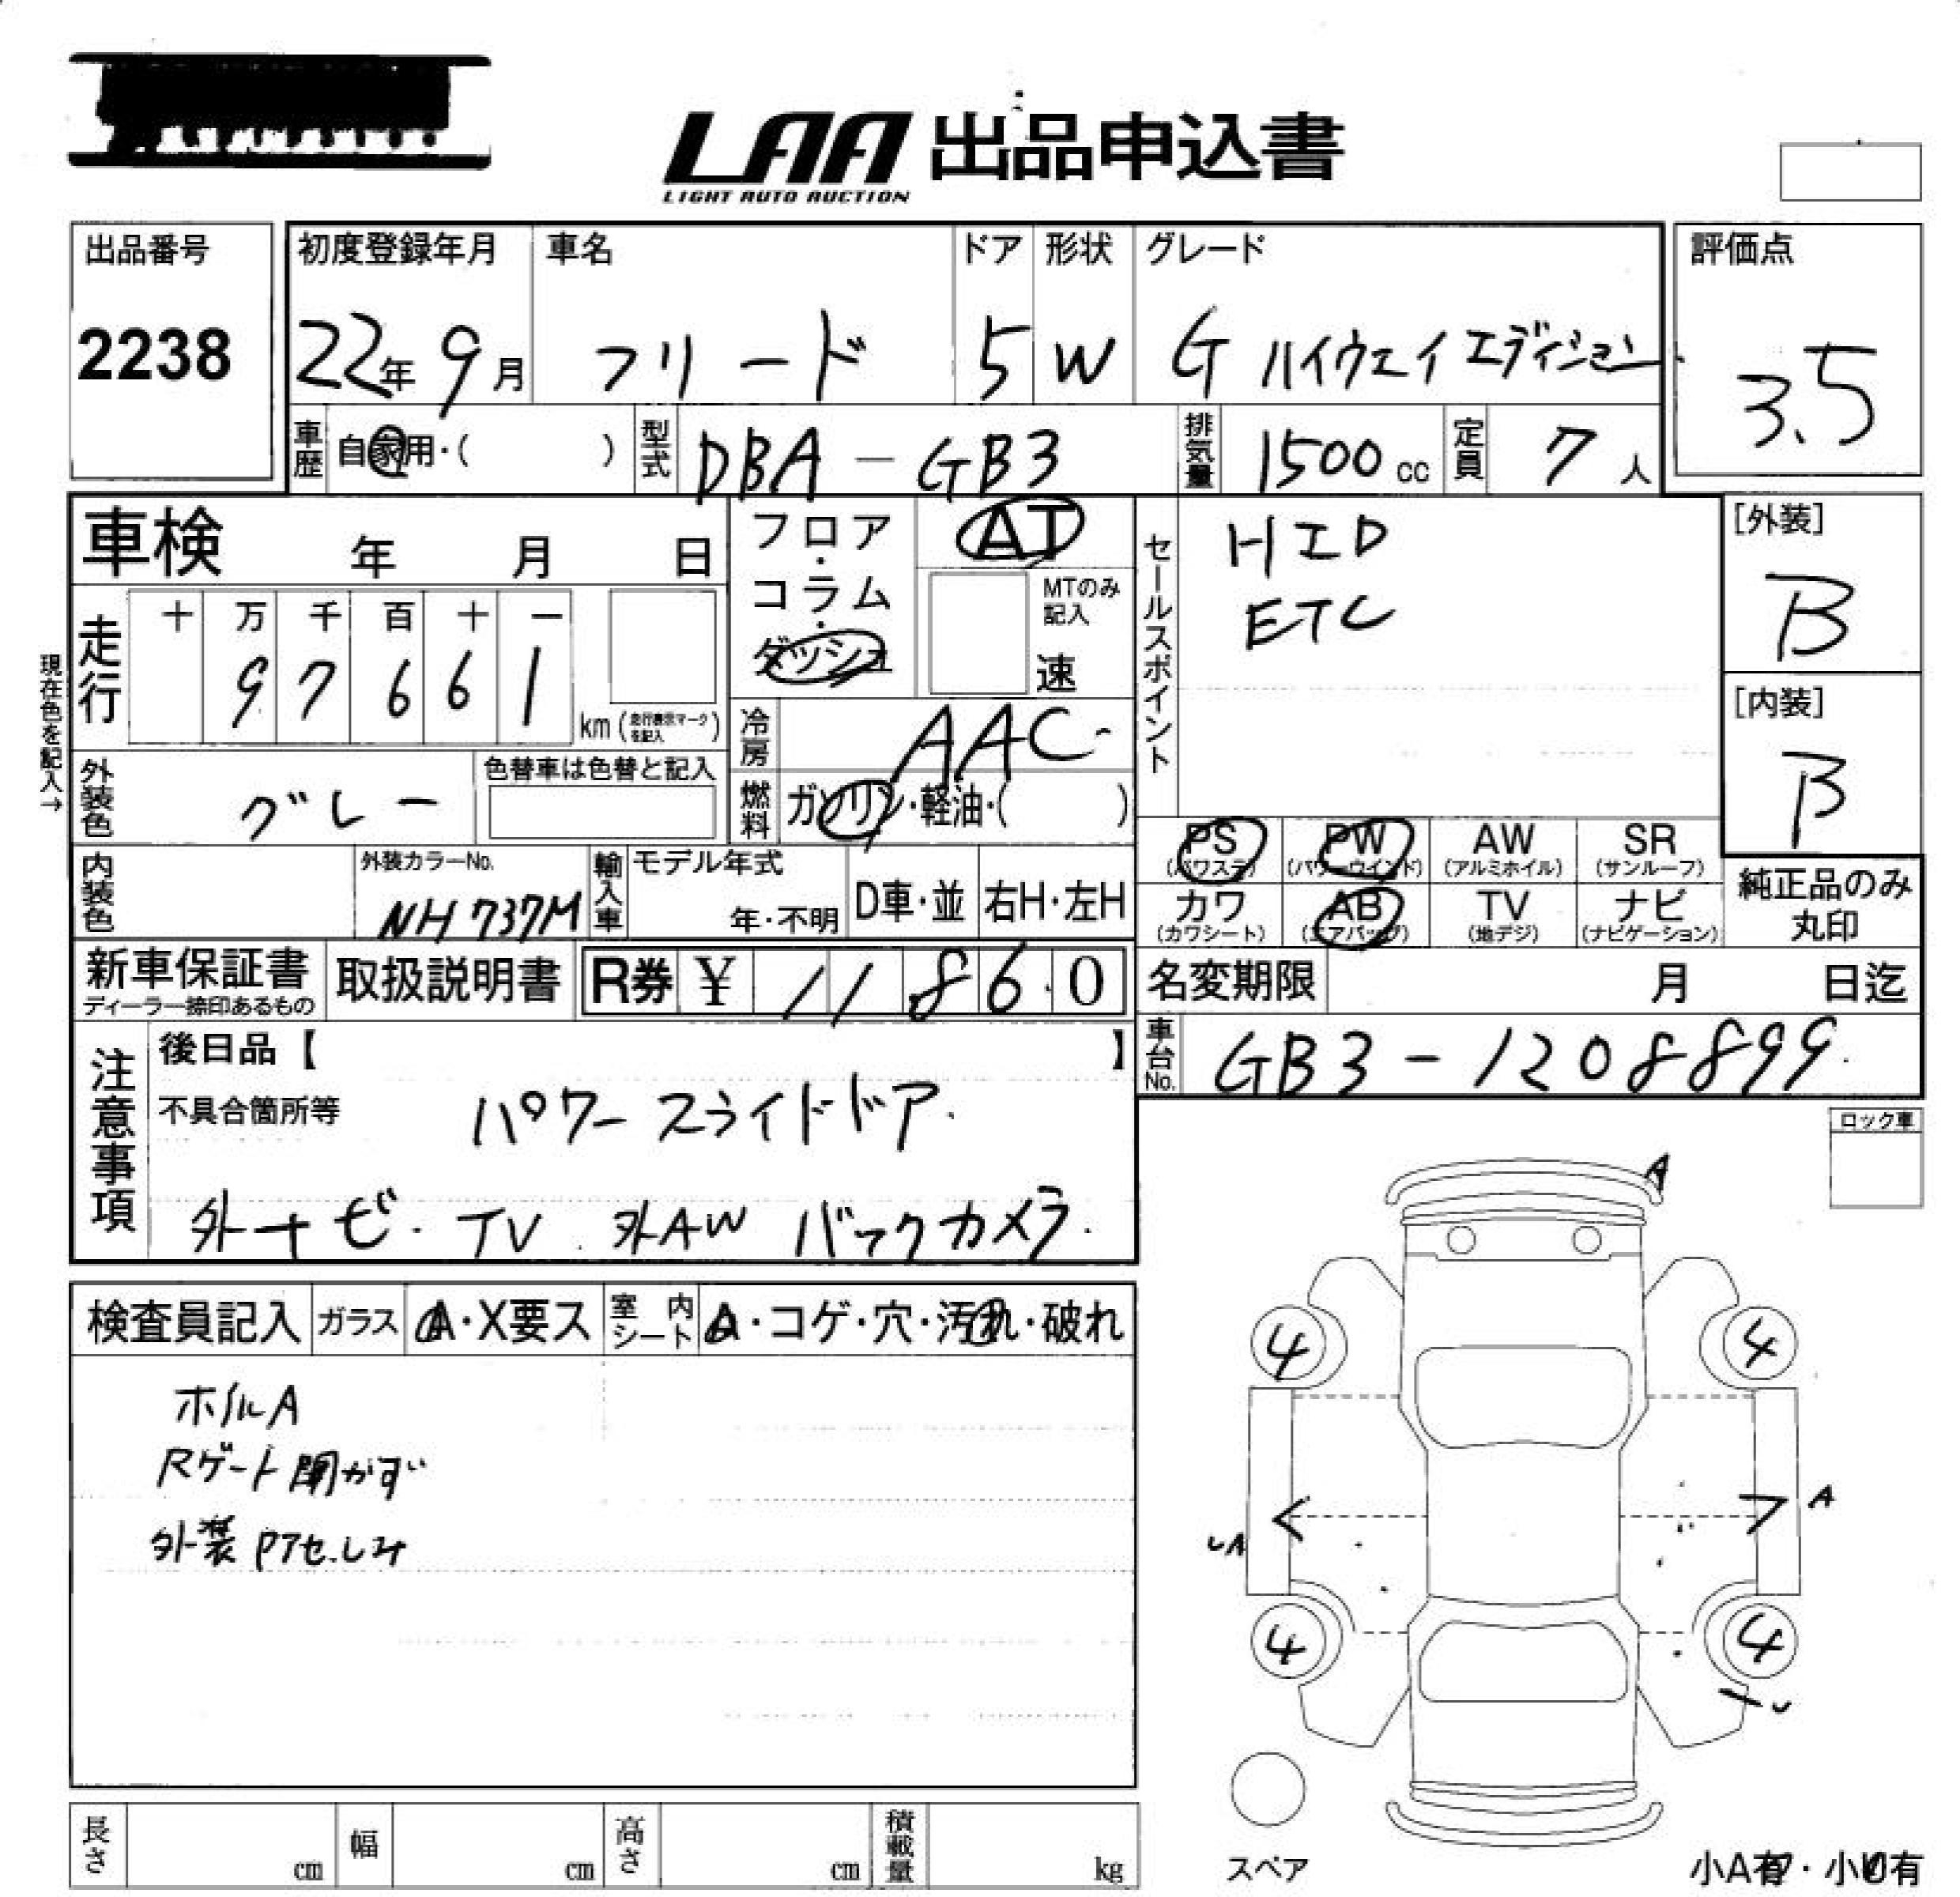 LAA 出品申込書
LIGHT AUTO AUCTION
出品番号
2238
初度登録年月
22年 9月
車名
フリード
ドア
5
形状
W
グレード
G ハイウェイ エディション
評価点
3.5
車歴 自家用・( )
型式 DBA-GB3
排気量 1500 cc
定員 7 人
車検 年 月 日
現在色を記入→
走行
十 万 千 百 十 一
9 7 6 6 1
km (走行表示マークを記入)
フロア・コラム・ダッシュ
AT
MTのみ記入
速
冷房 AAC
燃料 ガソリン・軽油・( )
外装色 グレー
色替車は色替と記入
内装色
外装カラーNo.
NH737M
輸入車
モデル年式
年・不明
D車・並
右H・左H
セールスポイント
HID
ETC
[外装]
B
[内装]
B
PS (パワステ)
PW (パワーウインド)
AW (アルミホイル)
SR (サンルーフ)
カワ (カワシート)
AB (エアバッグ)
TV (地デジ)
ナビ (ナビゲーション)
純正品のみ丸印
新車保証書
ディーラー捺印あるもの
取扱説明書
R券 ¥ 11860
名変期限 月 日迄
車台No. GB3-1208899
注意事項
後日品【 】
不具合箇所等
パワースライドドア
外ナビ・TV 外AW バックカメラ
ロック車
検査員記入
ガラス A・X要ス
室内シート A・コゲ・穴・汚れ・破れ
ホイルA
Rゲート開かず
外装Pアセ.しみ
A
4 4
A
4 4
スペア
小A有・小U有
長さ cm
幅 cm
高さ cm
積載量 kg